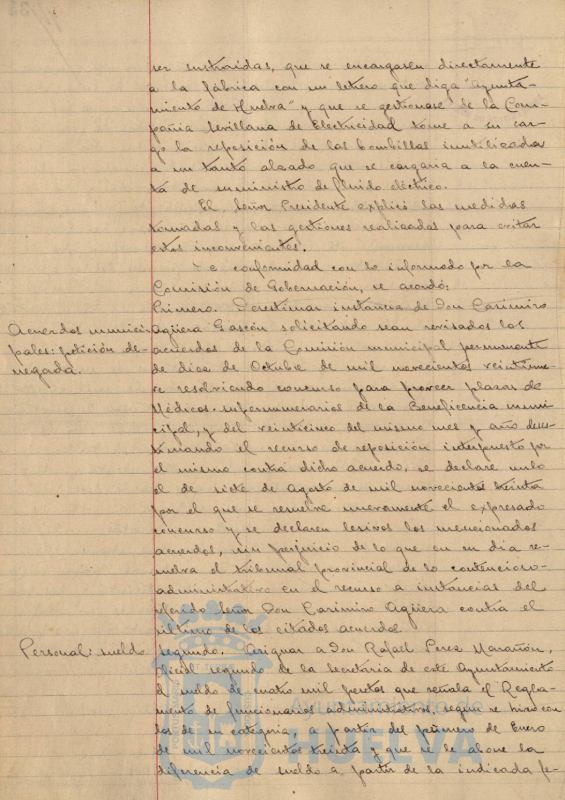 ser sustraidas, que se encargasen directamente
a la fábrica con un letrero que diga "Ayunta-
miento de Huelva" y que se gestionase de la Com-
pañia Sevillana de Electricidad tome a su car-
go la reposición de las bombillas inutilizadas
a un tanto alzado que se cargaria a la cuen-
ta de suministro de fluido eléctrico.
El Señor Presidente explicó las medidas
tomadas y las gestiones realizadas para evitar
estos inconvenientes.
De conformidad con lo informado por la
Comisión de Gobernación, se acordó:
Primero. Desestimar instancia de Don Casimiro
Acuerdos munici-
pales: petición de-
negada.
Agüera Gascón solicitando sean revisados los
acuerdos de la Comisión municipal permanente
de diez de Octubre de mil novecientos veintinue-
ve resolviendo concurso para proveer plazas de
Médicos supernumerarios de la Beneficencia muni-
cipal, y del veinticinco del mismo mes y año deses-
timando el recurso de reposición interpuesto por
el mismo contra dicho acuerdo, se declare nulo
el de siete de Agosto de mil novecientos treinta
por el que se resuelve nuevamente el expresado
concurso y se declaren lesivos los mencionados
acuerdos, sin perjuicio de lo que en su dia re-
suelva el tribunal provincial de lo contencioso-
administrativo en el recurso a instancias del
referido Señor Don Casimiro Agüera contra el
último de los citados acuerdos.
Personal: sueldo
Segundo. Asignar a Don Rafael Perez Marañón,
oficial segundo de la Secretaria de este Ayuntamiento
el sueldo de cuatro mil pesetas que señala el Regla-
mento de funcionarios administrativos, segun se hizo con
los de su categoria, a partir del primero de Enero
de mil novecientos treinta y que se le abone la
diferencia de sueldo a partir de la indicada fe-
Ayuntamiento de
HUELVA